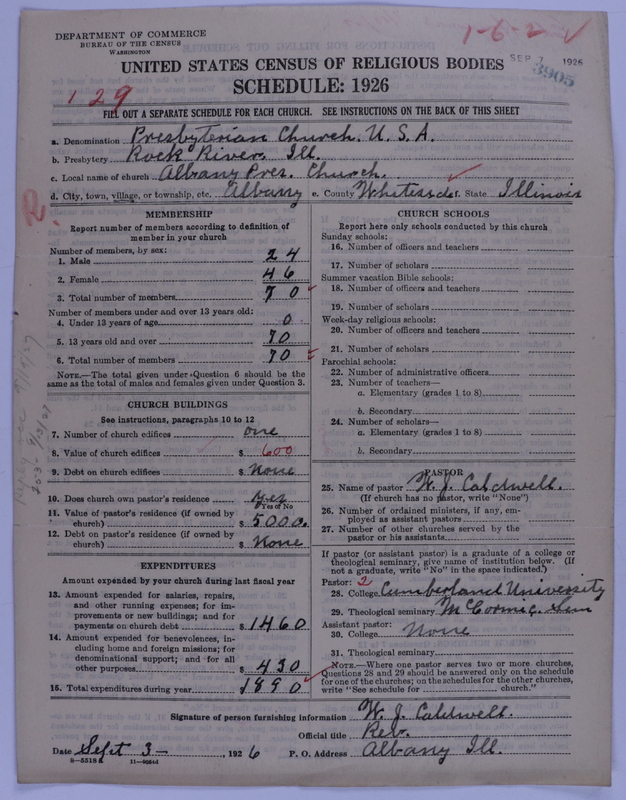 DEPARTMENT OF COMMERCE
BUREAU OF THE CENSUS
WASHINGTON
1-6-2
SEP 7 1926
3905
UNITED STATES CENSUS OF RELIGIOUS BODIES
SCHEDULE: 1926
129
FILL OUT A SEPARATE SCHEDULE FOR EACH CHURCH. SEE INSTRUCTIONS ON THE BACK OF THIS SHEET
a. Denomination Presbyterian Church. U. S. A.
b. Presbytery Rock River. Ill.
c. Local name of church Albany Pres. Church.
d. City, town, village, or township, etc. Albany e. County Whiteside f. State Illinois
MEMBERSHIP
Report number of members according to definition of
member in your church
Number of members, by sex:
1. Male 24
2. Female 46
3. Total number of members 70
Number of members under and over 13 years old:
4. Under 13 years of age 0
5. 13 years old and over 70
6. Total number of members 70
NOTE.—The total given under Question 6 should be
same as the total of males and females given under Question 3.
CHURCH BUILDINGS
See instructions, paragraphs 10 to 12
7. Number of church edifices one
8. Value of church edifices $ 600
9. Debt on church edifices $ None
10. Does church own pastor's residence yes
Yes or No
11. Value of pastor's residence (if owned by
church) $ 5000.
12. Debt on pastor's residence (if owned by
church) $ None
EXPENDITURES
Amount expended by your church during last fiscal year
13. Amount expended for salaries, repairs,
and other running expenses; for im-
provements or new buildings; and for
payments on church debt $ 1460
14. Amount expended for benevolences, in-
cluding home and foreign missions; for
denominational support; and for all
other purposes $ 430
15. Total expenditures during year $ 1890
CHURCH SCHOOLS
Report here only schools conducted by this church
Sunday schools:
16. Number of officers and teachers
17. Number of scholars
Summer vacation Bible schools:
18. Number of officers and teachers
19. Number of scholars
Week-day religious schools:
20. Number of officers and teachers
21. Number of scholars
Parochial schools:
22. Number of administrative officers
23. Number of teachers—
a. Elementary (grades 1 to 8)
b. Secondary
24. Number of scholars—
a. Elementary (grades 1 to 8)
b. Secondary
PASTOR
25. Name of pastor W. J. Caldwell.
(If church has no pastor, write "None")
26. Number of ordained ministers, if any, em-
ployed as assistant pastors
27. Number of other churches served by the
pastor or his assistants
If pastor (or assistant pastor) is a graduate of a college or
theological seminary, give name of institution below. (If
not a graduate, write "No" in the space indicated.)
Pastor: 2
28. College Cumberland University
29. Theological seminary McCormic Sem
Assistant pastor:
30. College None
31. Theological seminary
NOTE.—Where one pastor serves two or more churches,
Questions 28 and 29 should be answered only on the schedule
for one of the churches; on the schedules for the other churches,
write "See schedule for church."
Signature of person furnishing information W. J. Caldwell.
Official title Rev.
Date Sept 3- , 1926 P. O. Address Albany Ill.
8—5518